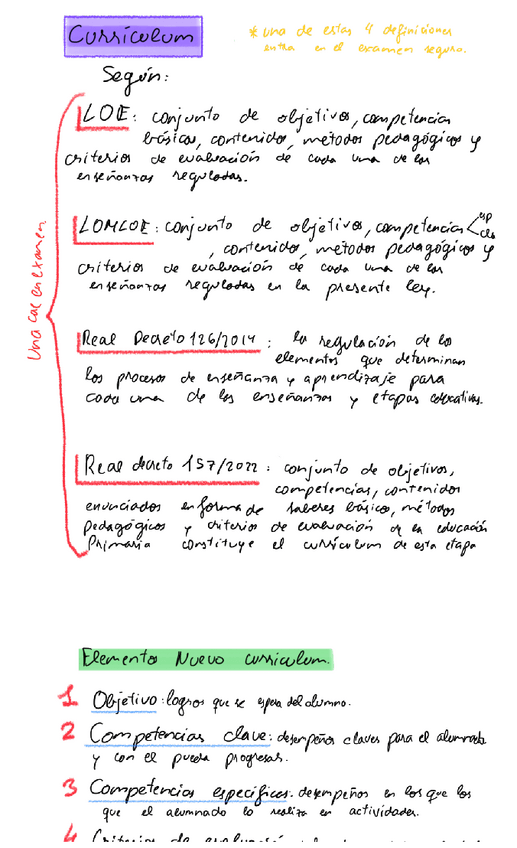 Curriculum
* una de estas 4 definiciones
entra en el examen seguro.
Según:
LOE: conjunto de objetivos, competencias
básicas, contenidos, métodos pedagógicos y
criterios de evaluación de cada una de las
enseñanzas reguladas.
LOMLOE: conjunto de objetivos, competencias < esp
cla
, contenidos, métodos pedagógicos y
criterios de evaluación de cada una de las
enseñanzas reguladas en la presente ley.
Una cae en examen
Real Decreto 126/2014: la regulación de los
elementos que determinan
los procesos de enseñanza y aprendizaje para
cada una de las enseñanzas y etapas educativas.
Real decreto 157/2022: conjunto de objetivos,
competencias, contenidos
enunciados en forma de saberes básicos, métodos
pedagógicos y criterios de evaluación de la educación
Primaria constituye el curriculum de esta etapa
Elementos Nuevo curriculum.
1 Objetivo: logros que se espera del alumno.
2 Competencias clave: desempeños claves para el alumnado
y con el pueda progresar.
3 Competencias específicas: desempeños en los que los
que el alumnado lo realiza en actividades.
4 Criterios de evaluación